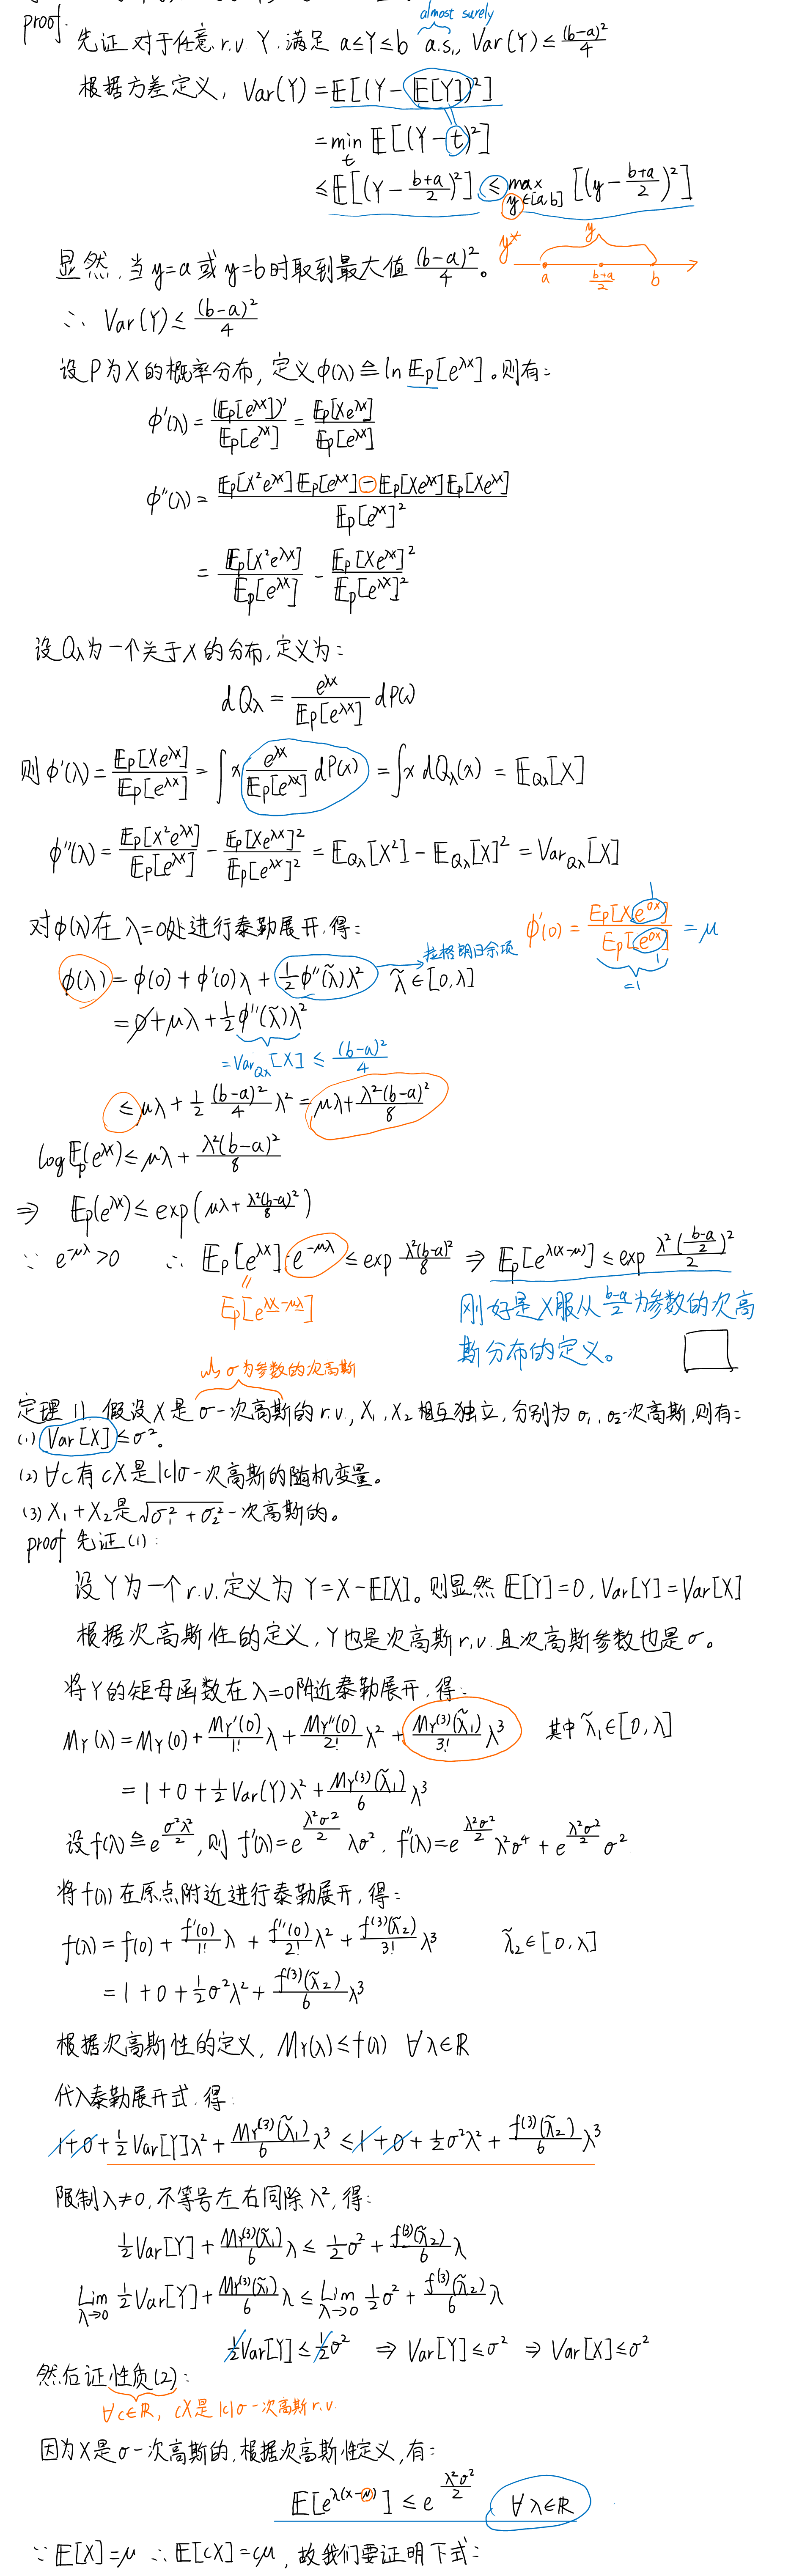 proof.
almost surely
先证 对于任意 r.v. Y. 满足 a≤Y≤b a.s., Var(Y)≤(b-a)²/4
根据方差定义, Var(Y) = E[(Y-E[Y])²]
= min_t E[(Y-t)²]
≤ E[(Y-(b+a)/2)²] ≤ max_{y∈[a,b]} [(y-(b+a)/2)²]
显然, 当 y=a 或 y=b 时取到最大值 (b-a)²/4。
y* y
a (b+a)/2 b
∴ Var(Y) ≤ (b-a)²/4
设 P 为 X 的概率分布, 定义 φ(λ) ≜ ln E_P[e^{λX}]。则有:
φ'(λ) = (E_P[e^{λX}])'/E_P[e^{λX}] = E_P[Xe^{λX}]/E_P[e^{λX}]
φ''(λ) = (E_P[X²e^{λX}] E_P[e^{λX}] - E_P[Xe^{λX}] E_P[Xe^{λX}])/E_P[e^{λX}]²
= E_P[X²e^{λX}]/E_P[e^{λX}] - E_P[Xe^{λX}]²/E_P[e^{λX}]²
设 Q_λ 为一个关于 X 的分布, 定义为:
dQ_λ = e^{λx}/E_P[e^{λX}] dP(x)
则 φ'(λ) = E_P[Xe^{λX}]/E_P[e^{λX}] = ∫x e^{λx}/E_P[e^{λX}] dP(x) = ∫x dQ_λ(x) = E_{Q_λ}[X]
φ''(λ) = E_P[X²e^{λX}]/E_P[e^{λX}] - E_P[Xe^{λX}]²/E_P[e^{λX}]² = E_{Q_λ}[X²] - E_{Q_λ}[X]² = Var_{Q_λ}[X]
对 φ(λ) 在 λ=0 处进行泰勒展开, 得:
φ'(0) = E_P[X e^{0X}]/E_P[e^{0X}] = μ
1
1
=1
拉格朗日余项
φ(λ) = φ(0) + φ'(0)λ + ½φ''(λ̃)λ² λ̃∈[0,λ]
= 0 + μλ + ½φ''(λ̃)λ²
= Var_{Q_λ}[X] ≤ (b-a)²/4
≤ μλ + ½ (b-a)²/4 λ² = μλ + λ²(b-a)²/8
log E_P(e^{λX}) ≤ μλ + λ²(b-a)²/8
⇒ E_P(e^{λX}) ≤ exp(μλ + λ²(b-a)²/8)
∵ e^{-μλ}>0 ∴ E_P[e^{λX}]·e^{-μλ} ≤ exp λ²(b-a)²/8 ⇒ E_P[e^{λ(X-μ)}] ≤ exp λ²((b-a)/2)²/2
=
E_P[e^{λX-μλ}]
刚好是 X 服从 (b-a)/2 为参数的次高
斯分布的定义。 □
以σ为参数的次高斯
定理 11. 假设 X 是 σ-次高斯的 r.v., X₁, X₂ 相互独立, 分别为 σ₁, σ₂-次高斯, 则有:
(1) Var[X] ≤ σ²。
(2) ∀c 有 cX 是 |c|σ-次高斯的随机变量。
(3) X₁+X₂ 是 √(σ₁²+σ₂²)-次高斯的。
proof 先证(1):
设 Y 为一个 r.v. 定义为 Y=X-E[X]。则显然 E[Y]=0, Var[Y]=Var[X]
根据次高斯性的定义, Y 也是次高斯 r.v. 且次高斯参数也是 σ。
将 Y 的矩母函数在 λ=0 附近泰勒展开, 得:
M_Y(λ) = M_Y(0) + M_Y'(0)/1! λ + M_Y''(0)/2! λ² + M_Y^{(3)}(λ̃₁)/3! λ³ 其中 λ̃₁∈[0,λ]
= 1+0+½Var(Y)λ² + M_Y^{(3)}(λ̃₁)/6 λ³
设 f(λ) ≜ e^{σ²λ²/2}, 则 f'(λ) = e^{λ²σ²/2} λσ². f''(λ) = e^{λ²σ²/2} λ²σ⁴ + e^{λ²σ²/2} σ²
将 f(λ) 在原点附近进行泰勒展开, 得:
f(λ) = f(0) + f'(0)/1! λ + f''(0)/2! λ² + f^{(3)}(λ̃₂)/3! λ³ λ̃₂∈[0,λ]
= 1+0+½σ²λ² + f^{(3)}(λ̃₂)/6 λ³
根据次高斯性的定义, M_Y(λ) ≤ f(λ) ∀λ∈R
代入泰勒展开式, 得:
1+0+½Var[Y]λ² + M_Y^{(3)}(λ̃₁)/6 λ³ ≤ 1+0+½σ²λ² + f^{(3)}(λ̃₂)/6 λ³
限制 λ≠0, 不等号左右同除 λ², 得:
½Var[Y] + M_Y^{(3)}(λ̃₁)/6 λ ≤ ½σ² + f^{(3)}(λ̃₂)/6 λ
Lim_{λ→0} ½Var[Y] + M_Y^{(3)}(λ̃₁)/6 λ ≤ Lim_{λ→0} ½σ² + f^{(3)}(λ̃₂)/6 λ
½Var[Y] ≤ ½σ² ⇒ Var[Y] ≤ σ² ⇒ Var[X] ≤ σ²
然后证性质(2):
∀c∈R, cX 是 |c|σ-次高斯 r.v.
因为 X 是 σ-次高斯的, 根据次高斯性定义, 有:
E[e^{λ(X-μ)}] ≤ e^{λ²σ²/2} ∀λ∈R
∵ E[X]=μ ∴ E[cX]=cμ, 故我们要证明下式: